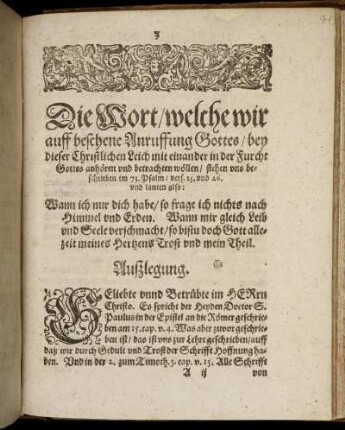 3
Die Wort / welche wir
auff beschene Anruffung Gottes / bey
dieser Christlichen Leich mit einander in der Furcht
Gottes anhören vnd betrachten wöllen / stehen vns be-
schrieben im 73. Psalm / vers. 25. vnd 26.
vnd lauten also:
Wann ich nur dich habe / so frage ich nichts nach
Himmel vnd Erden. Wann mir gleich Leib
vnd Seele verschmacht / so bistu doch Gott alle-
zeit meines Hertzens Trost vnd mein Theil.
Außlegung.
GEliebte vnnd Betrübte im HERrn
Christo. Es spricht der Heyden Doctor S.
Paulus in der Epistel an die Römer geschrie-
ben am 15. cap. v. 4. Was aber zuvor geschrie-
ben ist / das ist vns zur Lehre geschrieben / auff
daß wir durch Gedult vnd Trost der Schrifft Hoffnung ha-
ben. Vnd in der 2. zum Timoth. 3. cap. v. 15. Alle Schrifft
A ij von